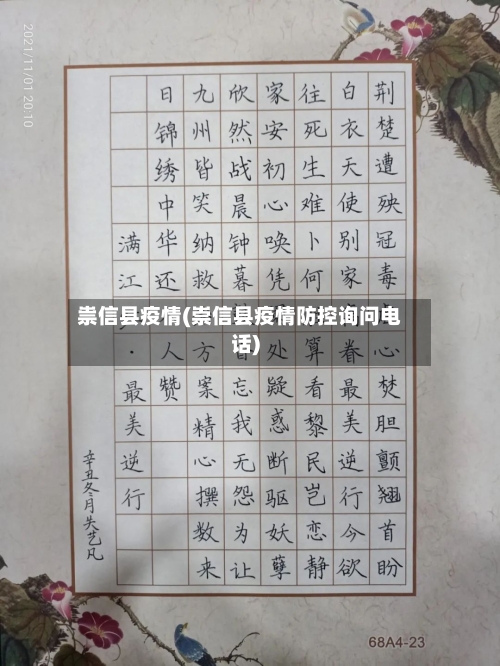 2021/11/01 20:10
崇信县疫情(崇信县疫情防控询问电
话)
荆楚遭殃冠毒心焚胆颤翘首盼
白衣天使别家眷最美逆行今欲
往死生难卜何算看黎民岂恋静
家安初心唤凭处疑惑断驱妖孽
欣然战晨钟暮忘我无怨为让
九州皆笑纳救方案精心撰数来
日锦绣中华还人赞
满江·最美逆行
辛丑冬月失艺凡
68A4-23